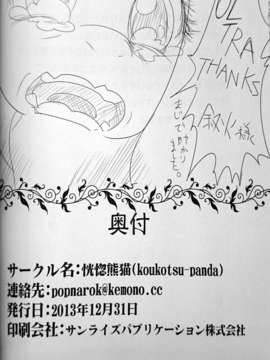 ULTRA
THANKS
まじで助かりました。
奥付
サークル名：恍惚熊猫(koukotsu-panda)
連絡先：popnarok@kemono.cc
発行日：2013年12月31日
印刷会社：サンライズパブリケーション株式会社